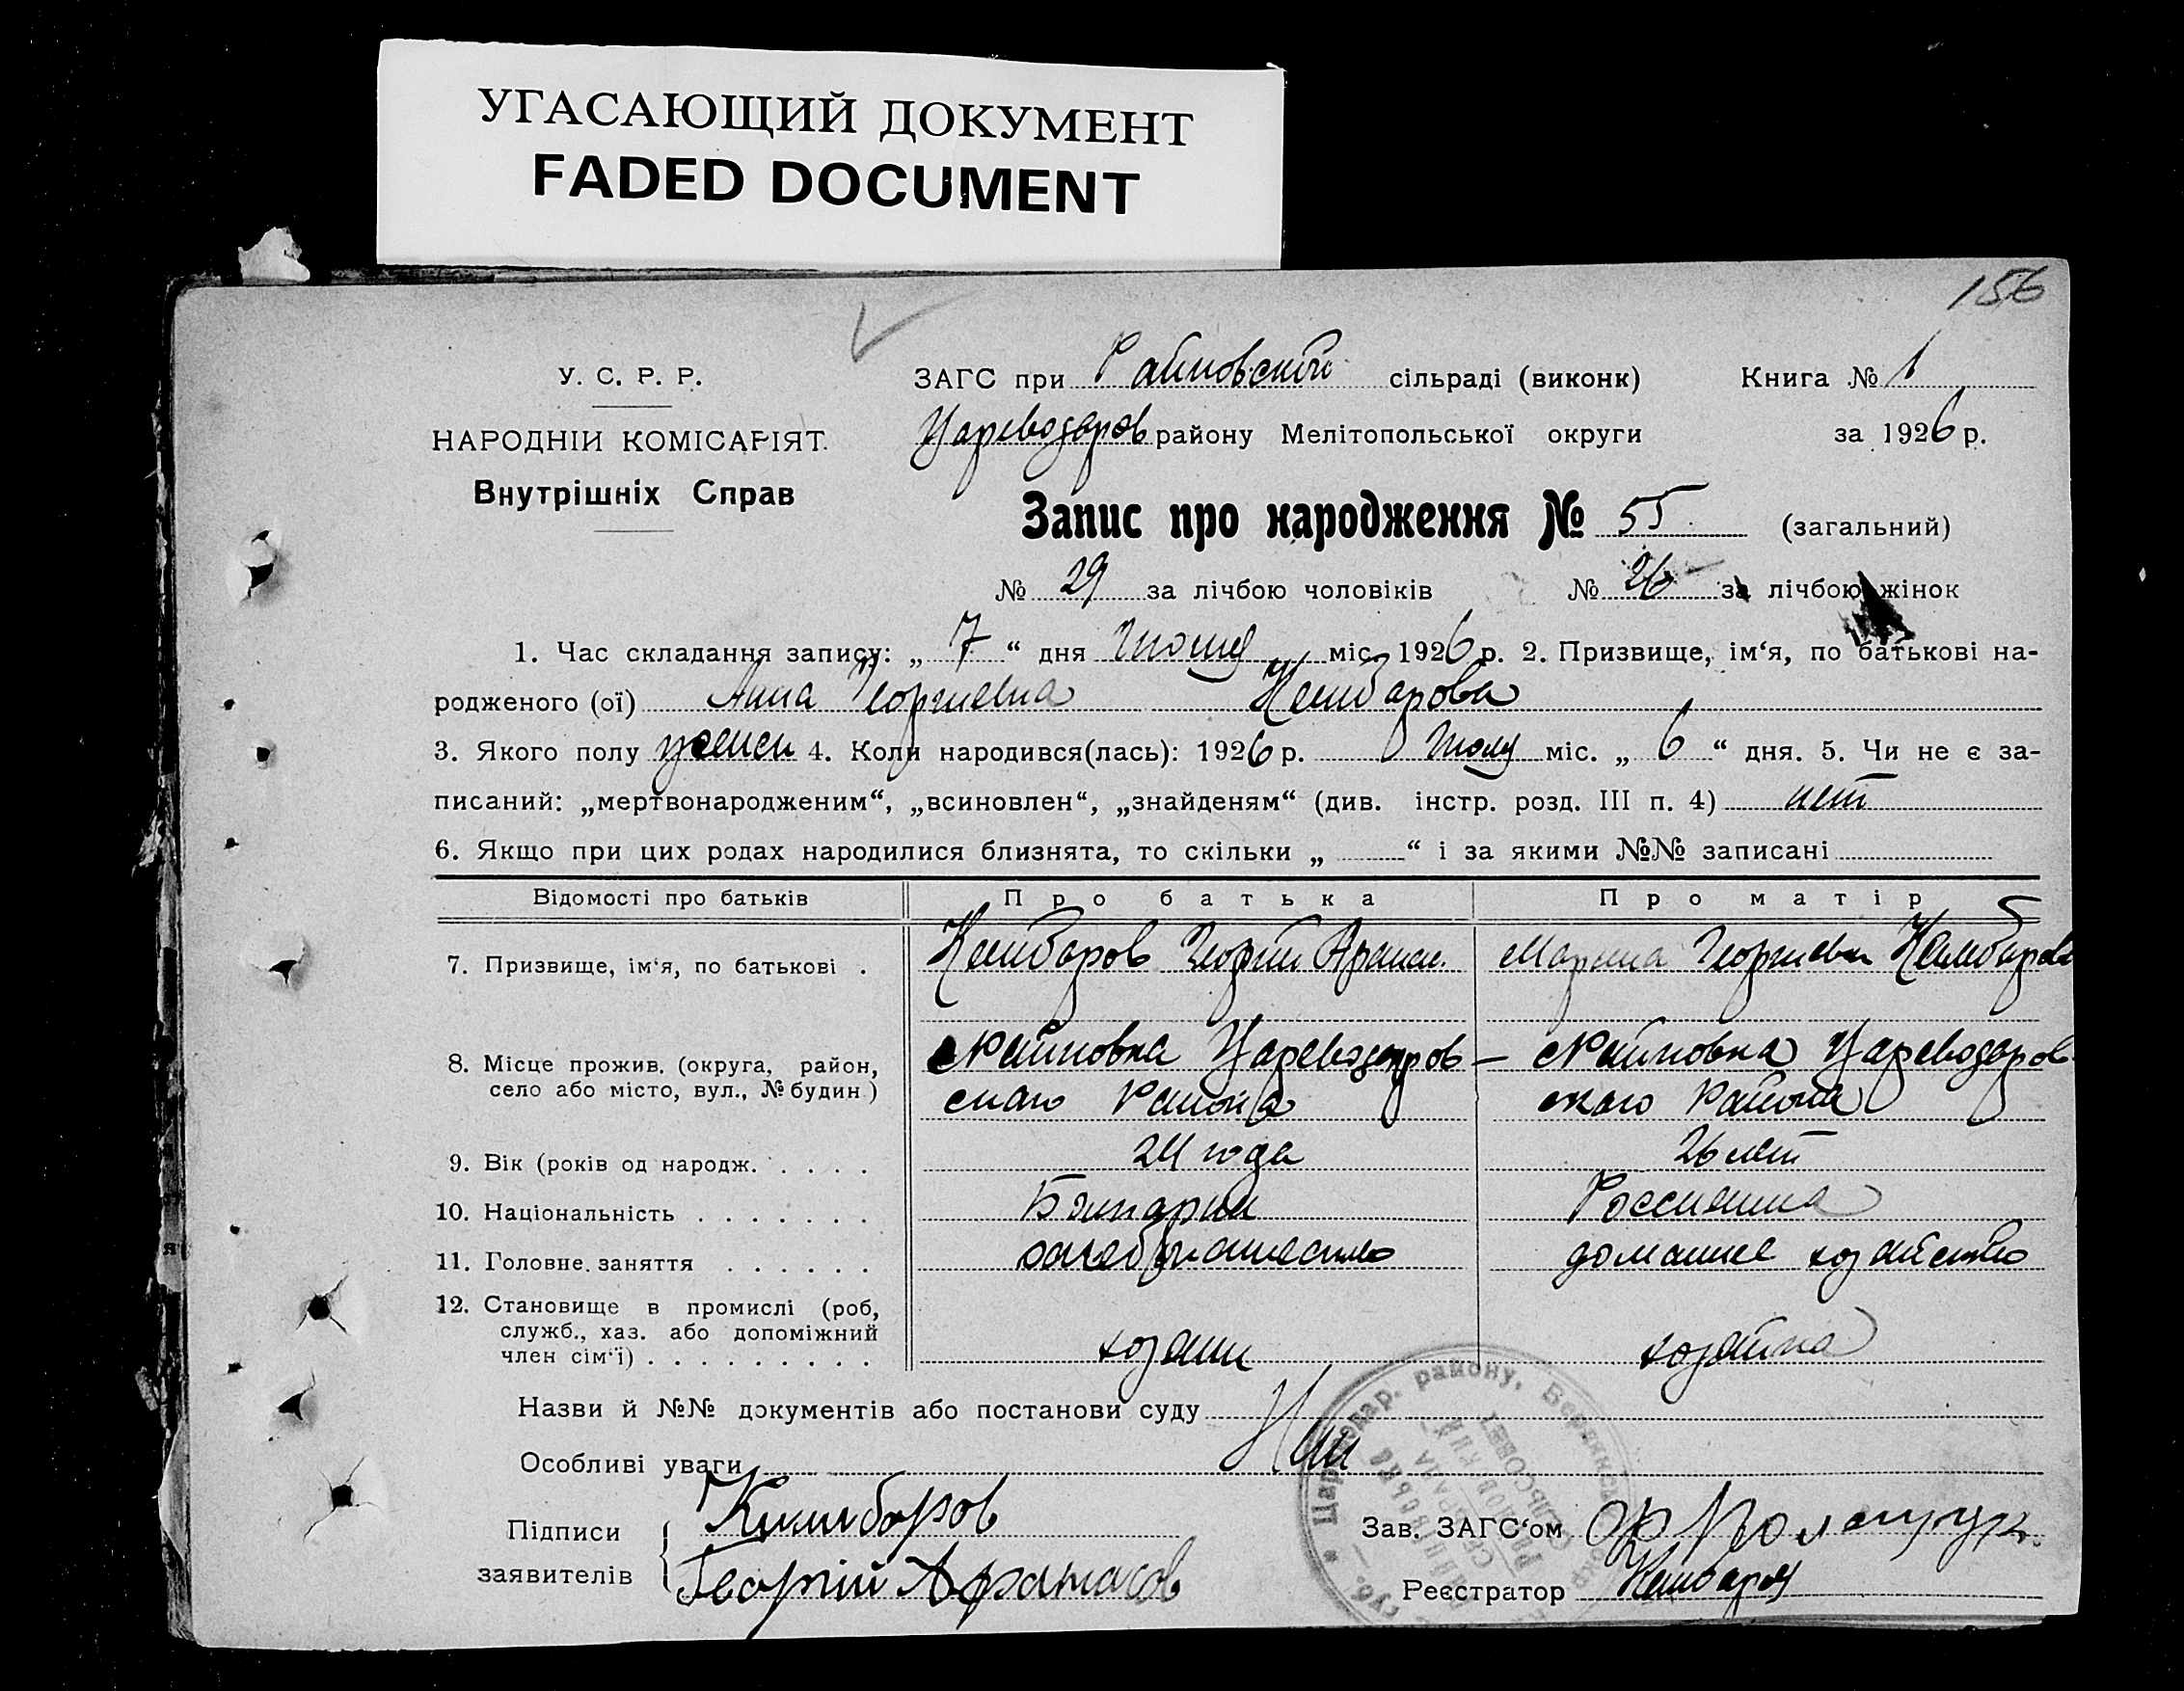 УГАСАЮЩИЙ ДОКУМЕНТ
FADED DOCUMENT
156
У. С. Р. Р.
НАРОДНІЙ КОМІСАРІЯТ.
Внутрішніх Справ
ЗАГС при Райновской сільраді (виконк) Книга № 1
Цареводаров. району Мелітопольської округи за 1926 р.
Запис про народження № 55 (загальний)
№ 29 за лічбою чоловіків № 26 за лічбою жінок
1. Час складання запису: „ 7 “ дня міс. 1926 р. 2. Призвище, ім‘я, по батькові на-
родженого (ої) Анна Георгиевна Кембарова
3. Якого полу женск 4. Коли народився(лась): 1926 р. міс. „ 6 “ дня. 5. Чи не є за-
писаний: „мертвонародженим“, „всиновлен“, „знайденям“ (див. інстр. розд. III п. 4) нет
6. Якщо при цих родах народилися близнята, то скільки „ “ і за якими №№ записані
Відомості про батьків Про батька Про матір
7. Призвище, ім‘я, по батькові . Кембаров Георгий Афанас. Марина Георгиевн Кембарова
8. Місце прожив. (округа, район, село або місто, вул., № будин ) с Райновка Цареводаров - с Райновка Цареводаров
скаго Района скаго Района
9. Вік (років од народж. . . . . 24 года 26 лет
10. Національність . . . . . . . Россиянка
11. Головне. заняття . . . . . . хлебопашество домашнее хозяйство
12. Становище в промислі (роб, служб., хаз. або допоміжний член сім‘ї) . . . . . . . . . хозяин хозяйка
Назви й №№ документів або постанови суду
Особливі уваги
Підписи Кимбаров
заявителів Георгий Афанасов
Зав. ЗАГС‘ом
Реєстратор Кембаров